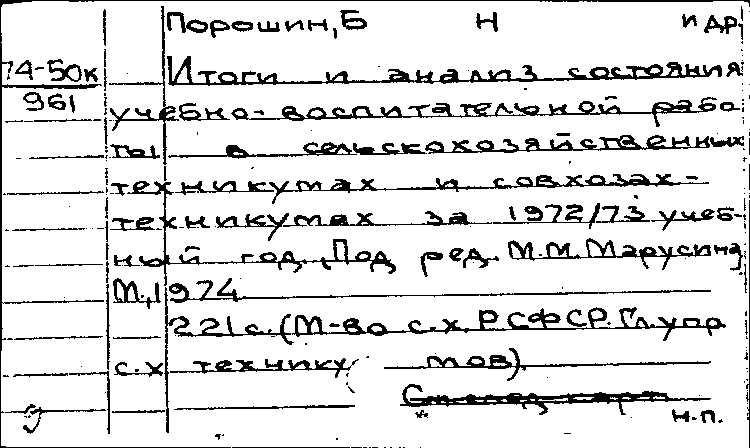 Порошин, Б Н и др.
74-50к
961
Итоги и анализ состояния
учебно-воспитательной рабо
ты в сельскохозяйственных
техникумах и совхозах-
техникумах за 1972/73 учеб-
ный год. Под ред. М.М. Марусина,
М., 1974
221 с. (М-во с.х. РСФСР. Гл. упр
с.х технику мов).
См след карт
* н.п.